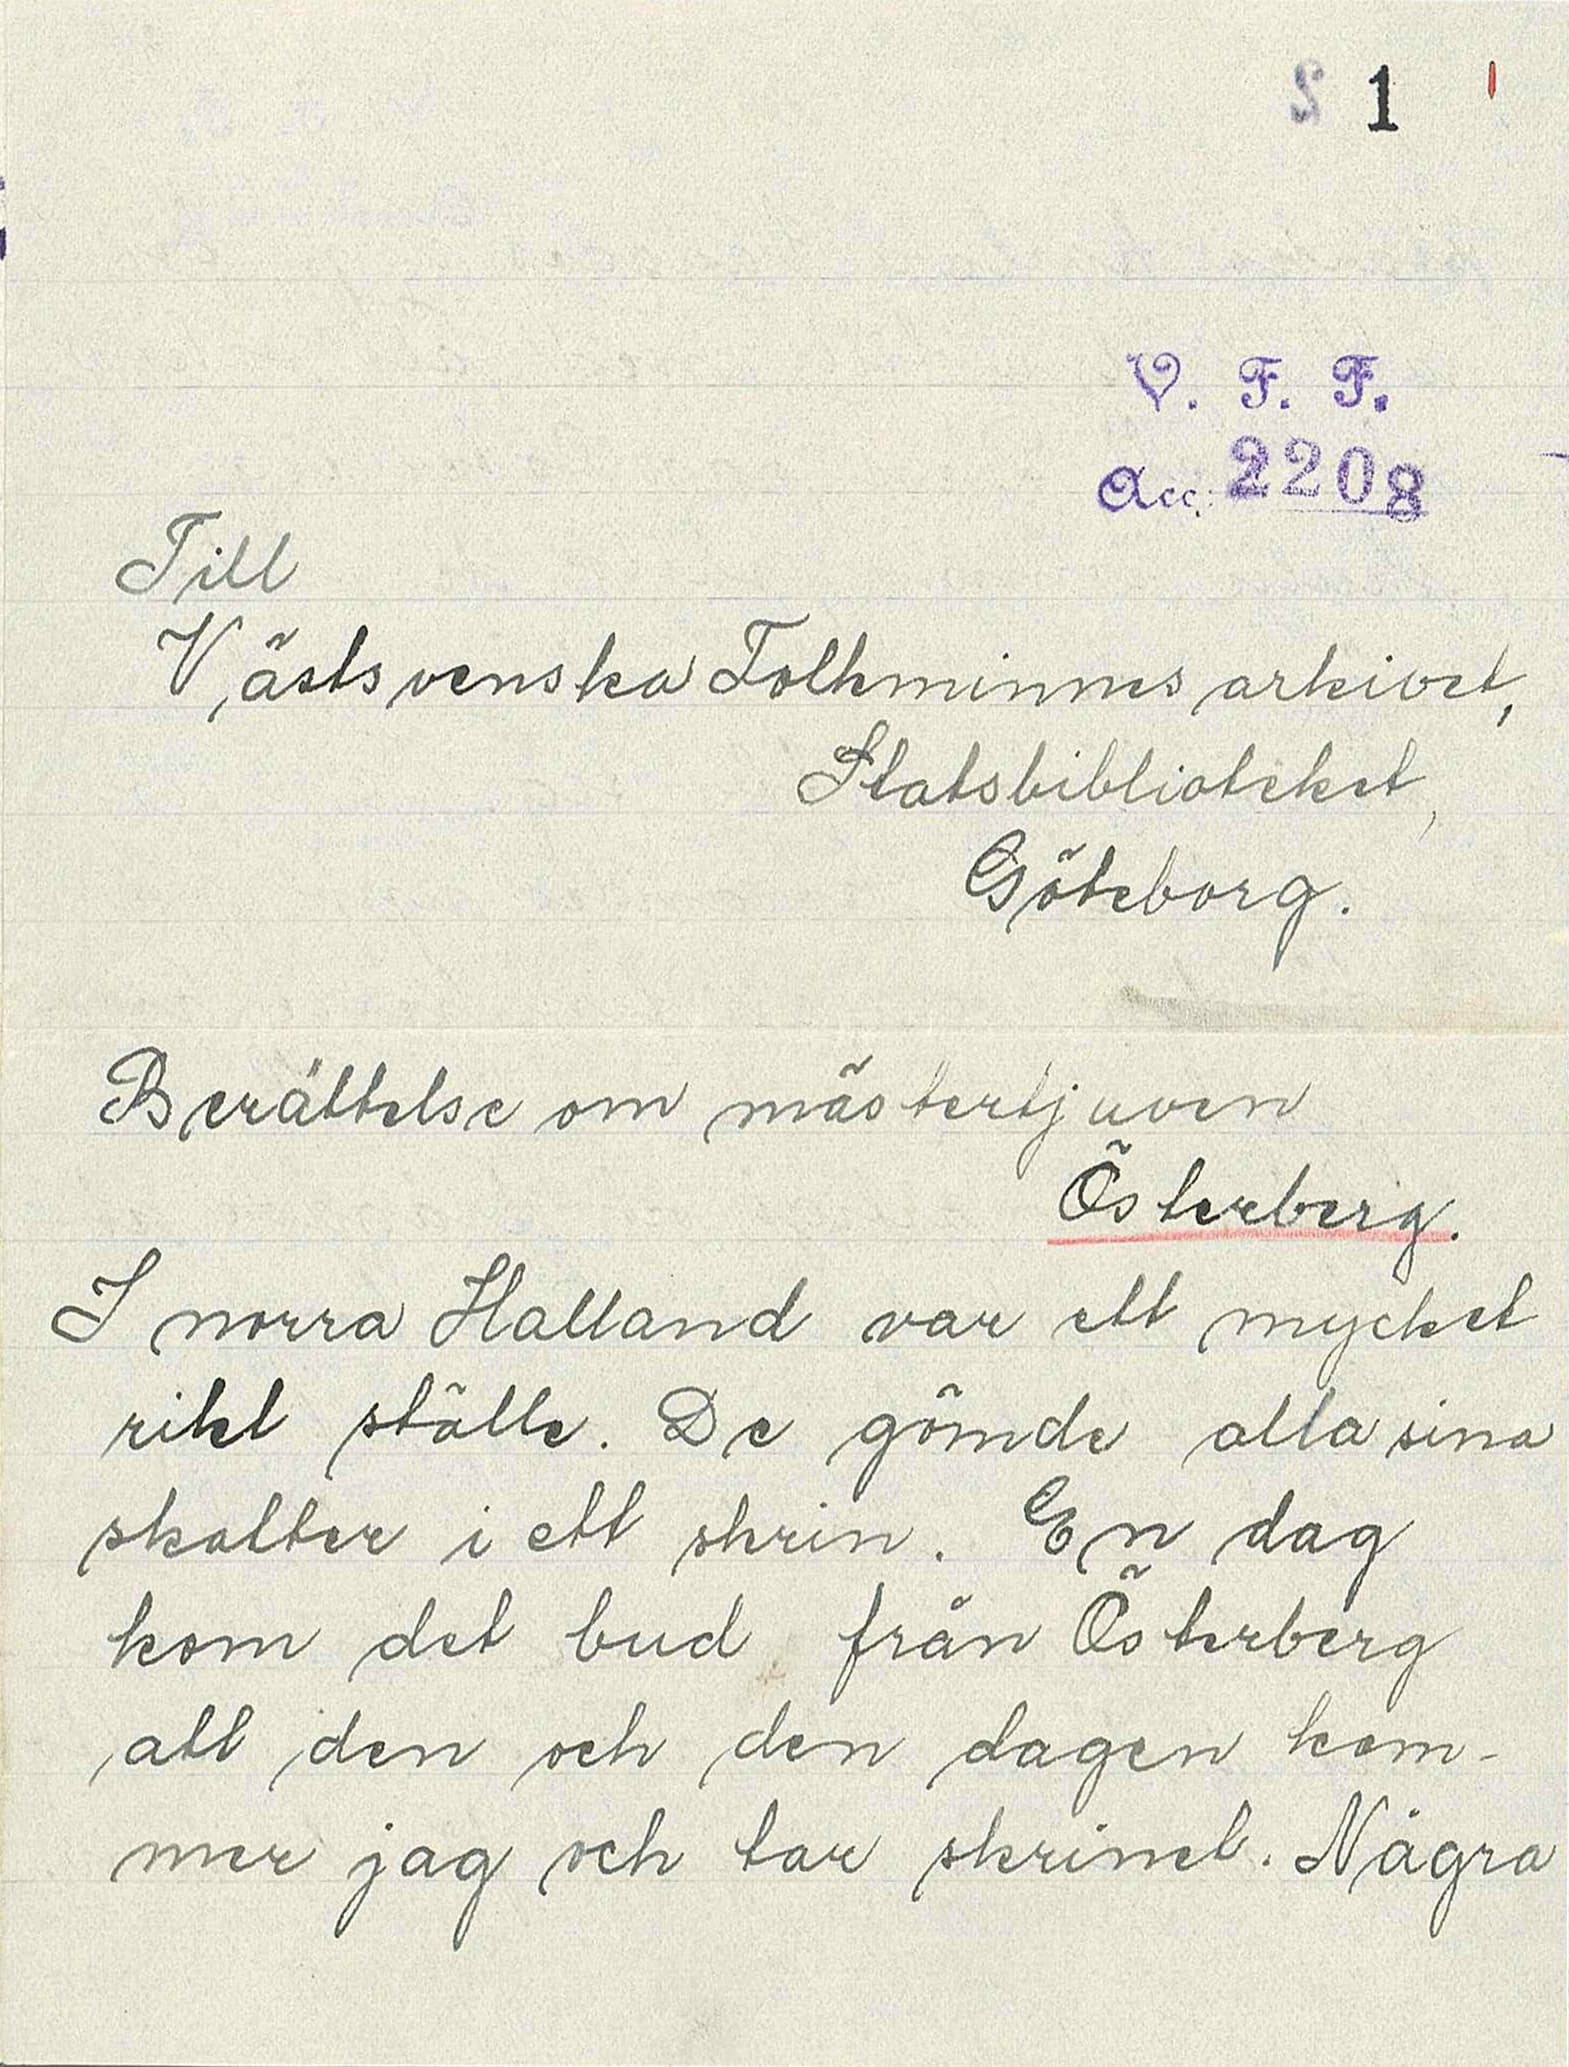 1
V. F. F.
Acc. 2208
Till
Västsvenska Folkminnesarkivet,
Statsbiblioteket,
Göteborg.
Berättelse om mästertjuven
Österberg.
I norra Halland var ett mycket
rikt ställe. De gömde alla sina
skatter i ett skrin. En dag
kom det bud från Österberg
att den och den dagen kom-
mer jag och tar skrinet. Några